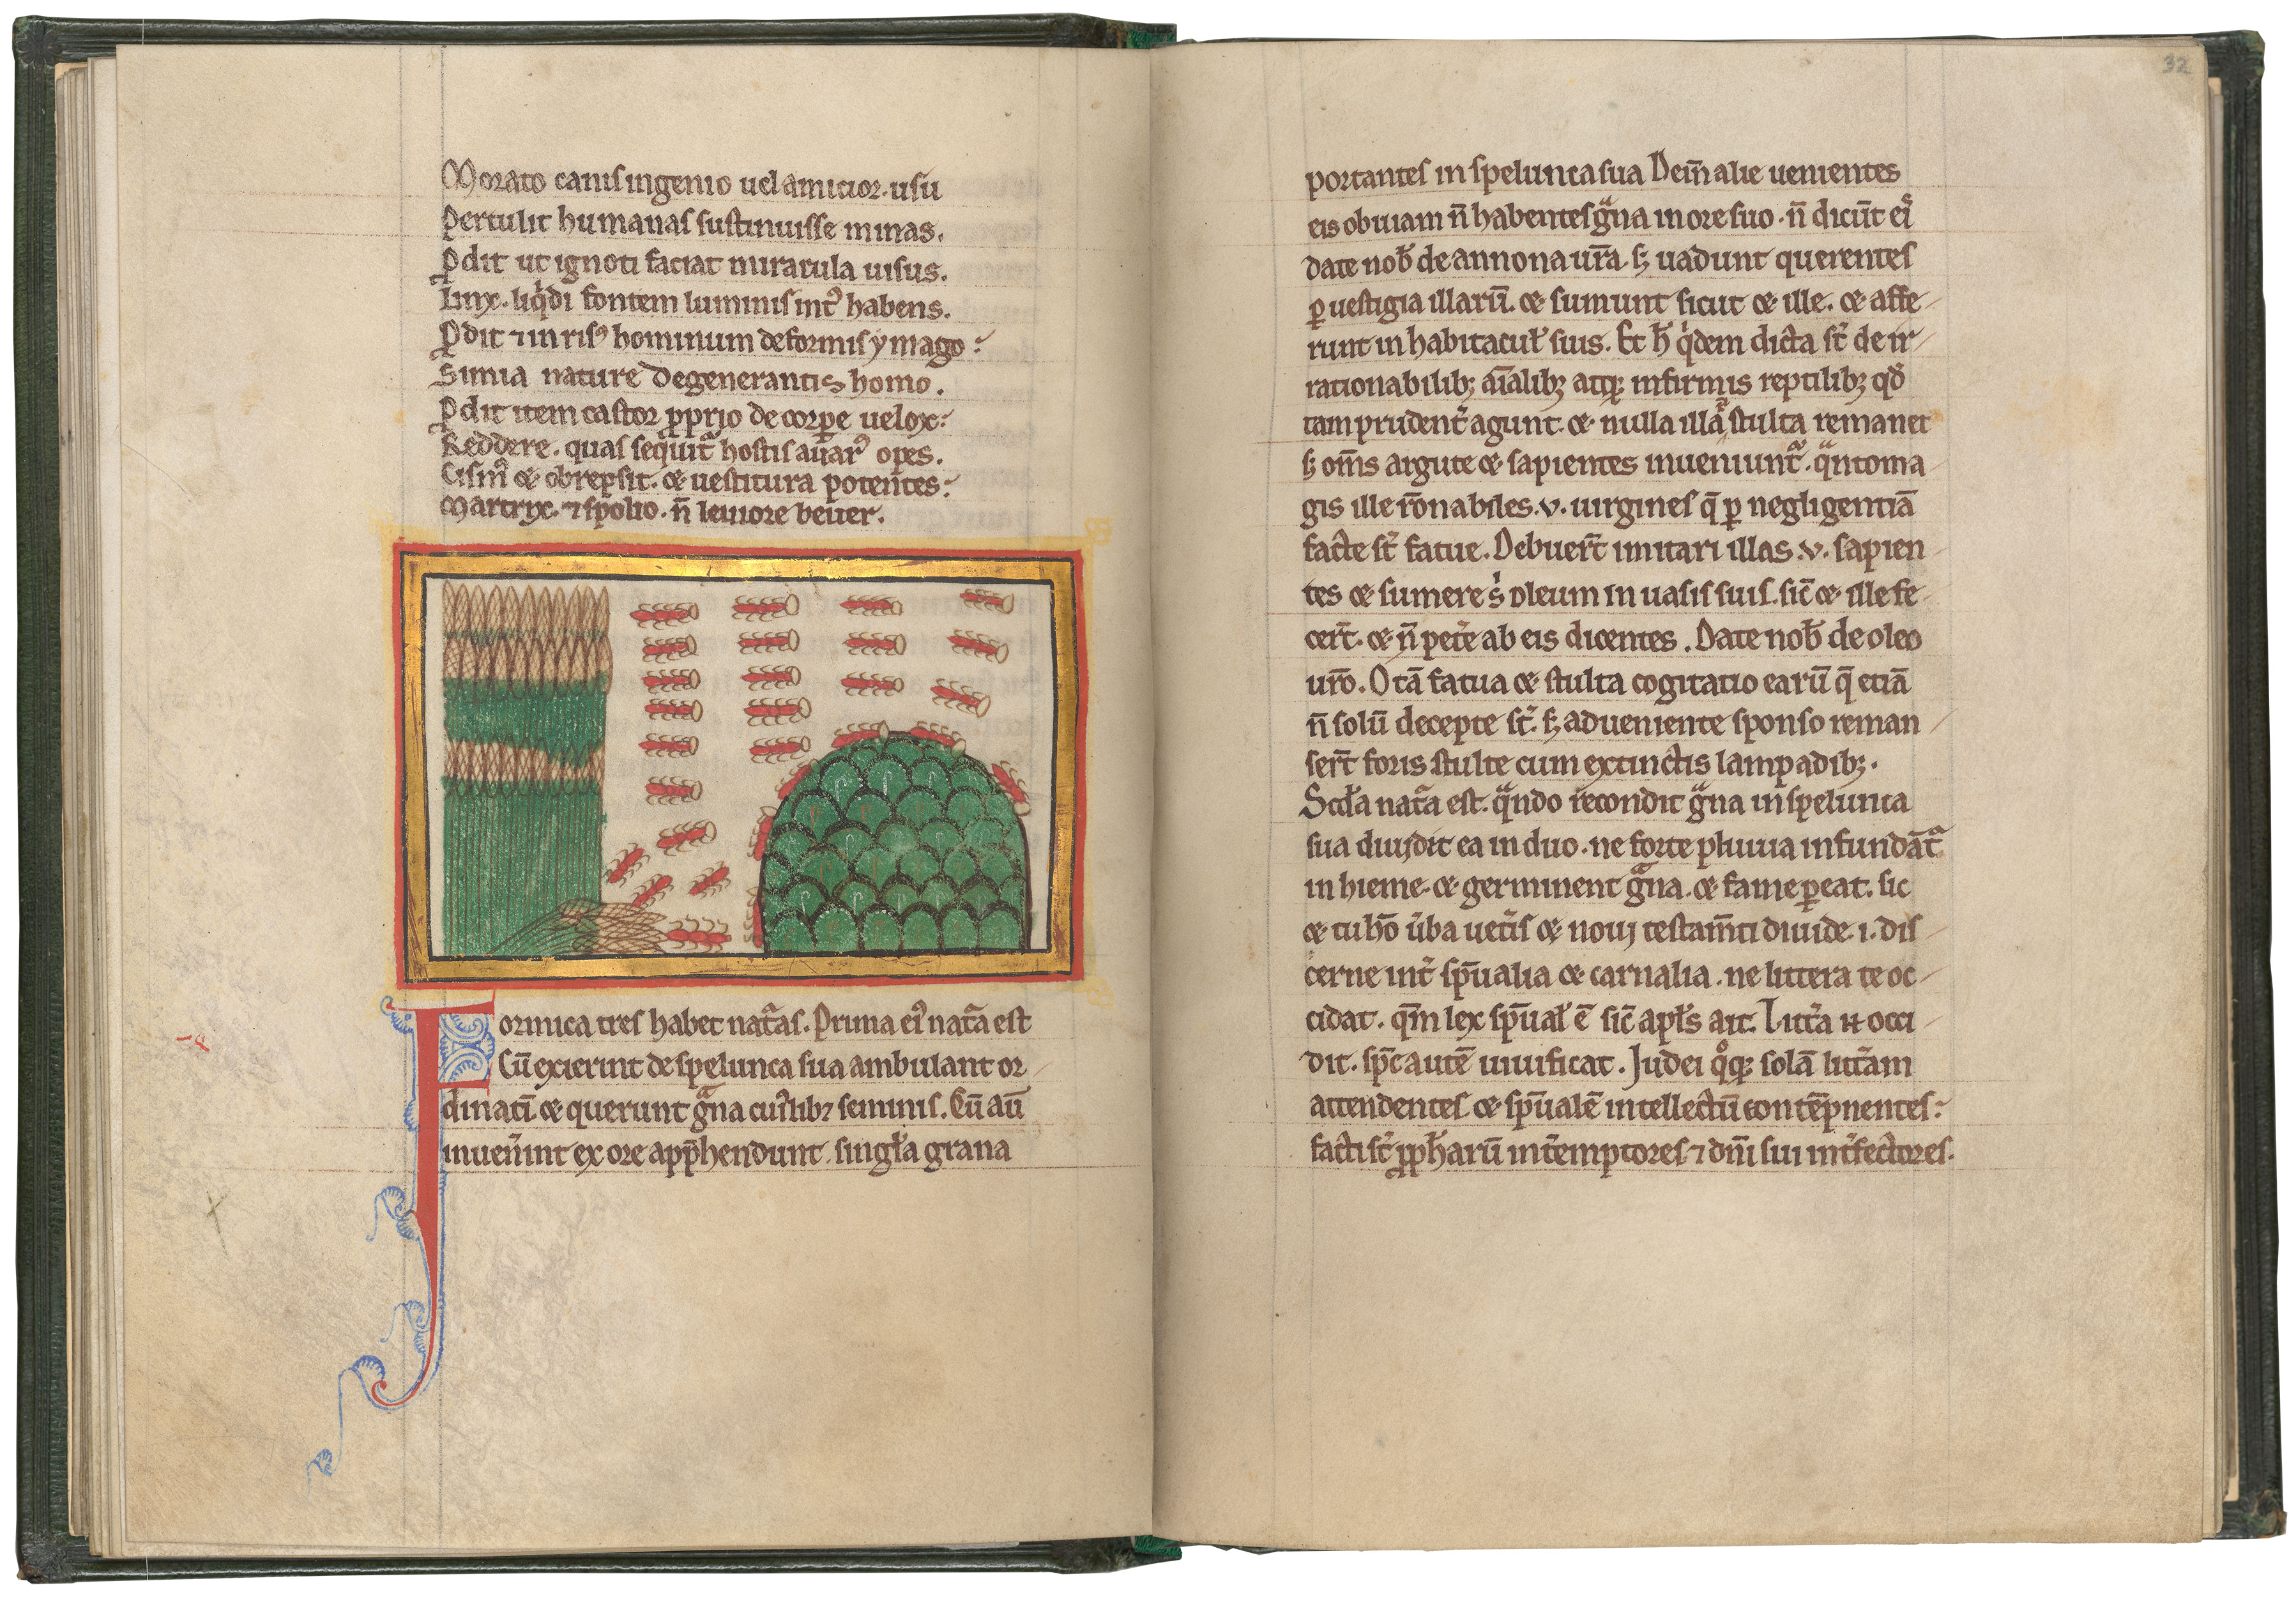 Morato canis ingenio uel amicior. usu
Pertulit humanas sustinuisse minas.
Ꝓdit ut ignoti faciat miracula uisus.
Linx. liqͥdi fontem luminis int᷒ habens.
Ꝓdit ⁊ in risꝰ hominum deformis ymago:
Simia nature degenerantis homo.
Ꝓdit item castor ꝓprio de corꝑe uelox:
Reddere. quas sequit᷑ hostis auarꝰ opes.
Cisim᷒ & obrepsit. & uestitura potentes:
Martrix. ⁊ spolio. n̄ leuiore beuer.
Formica tres habet nat᷑as. Prima ei᷒ nat᷑a est
Cū exierint de spelunca sua ambulant or
dinatī & querunt gᷓna cui᷒libꝫ seminis. Cū aū
inuen᷒int ex ore app̄hendunt singl᷒a grana
32
portantes in spelunca sua Dein̄ alie uenientes
eis obuiam n̄ habentes gᷓna in ore suo. n̄ dicūt ei᷒
date nob᷒ de annona ur̄a. sꝫ uadunt querentes
ꝑ uestigia illarū. & sumunt sicut & ille. & affe
runt in habitacul᷒ suis. Et h᷒ qͥdem dicta st᷒ de ir
rationabilibꝫ aīalibꝫ atqꝫ infirmis reptilibꝫ qd᷒
tam prudent᷒ agunt. & nulla illaᷓ stulta remanet
sꝫ om̄s argute & sapientes inueniunt᷑. qᷓnto ma
gis ille ro̅nabiles .v. uirgines q̄ ꝑ negligentiā
facte st᷒ fatue. Debuer̄t imitari illas .v. sapien
tes & sumere sͥ oleum in uasis suis. sic̄ & ille fe
cer̄t. & n̄ pet᷒e ab eis dicentes. Date nob᷒ de oleo
ur̄o. O tā fatua & stulta cogitatio earū q̄ etiā
n̄ solū decepte st᷒. sꝫ adueniente sponso reman
ser̄t foris stulte cum extinctis lampadibꝫ.
Scd᷒a nat᷑a est. qᷓndo recondit gᷓna in spelunca
sua diuidit ea in duo. ne forte pluuia infundāt᷑
in hieme. & germinent gᷓna. & fame ꝑeat. sic
& tu ho̅ u᷒ba uet᷒is & noui testam̄ti diuide .i. dis
cerne int᷒ sp̄ualia & carnalia. ne littera te oc
cidat. qm̄ lex sp̄ual᷒ ē sic̄ apl᷒s ait. Litt᷒a occi
dit. sp̄c autē uiuificat. Judei qͦqꝫ solā litt᷒am
attendentes & sp̄ualē intellectū contēpnentes:
facti st᷒ ꝓph᷒arū int᷒emptores ⁊ dn̄i sui int᷒fectores.